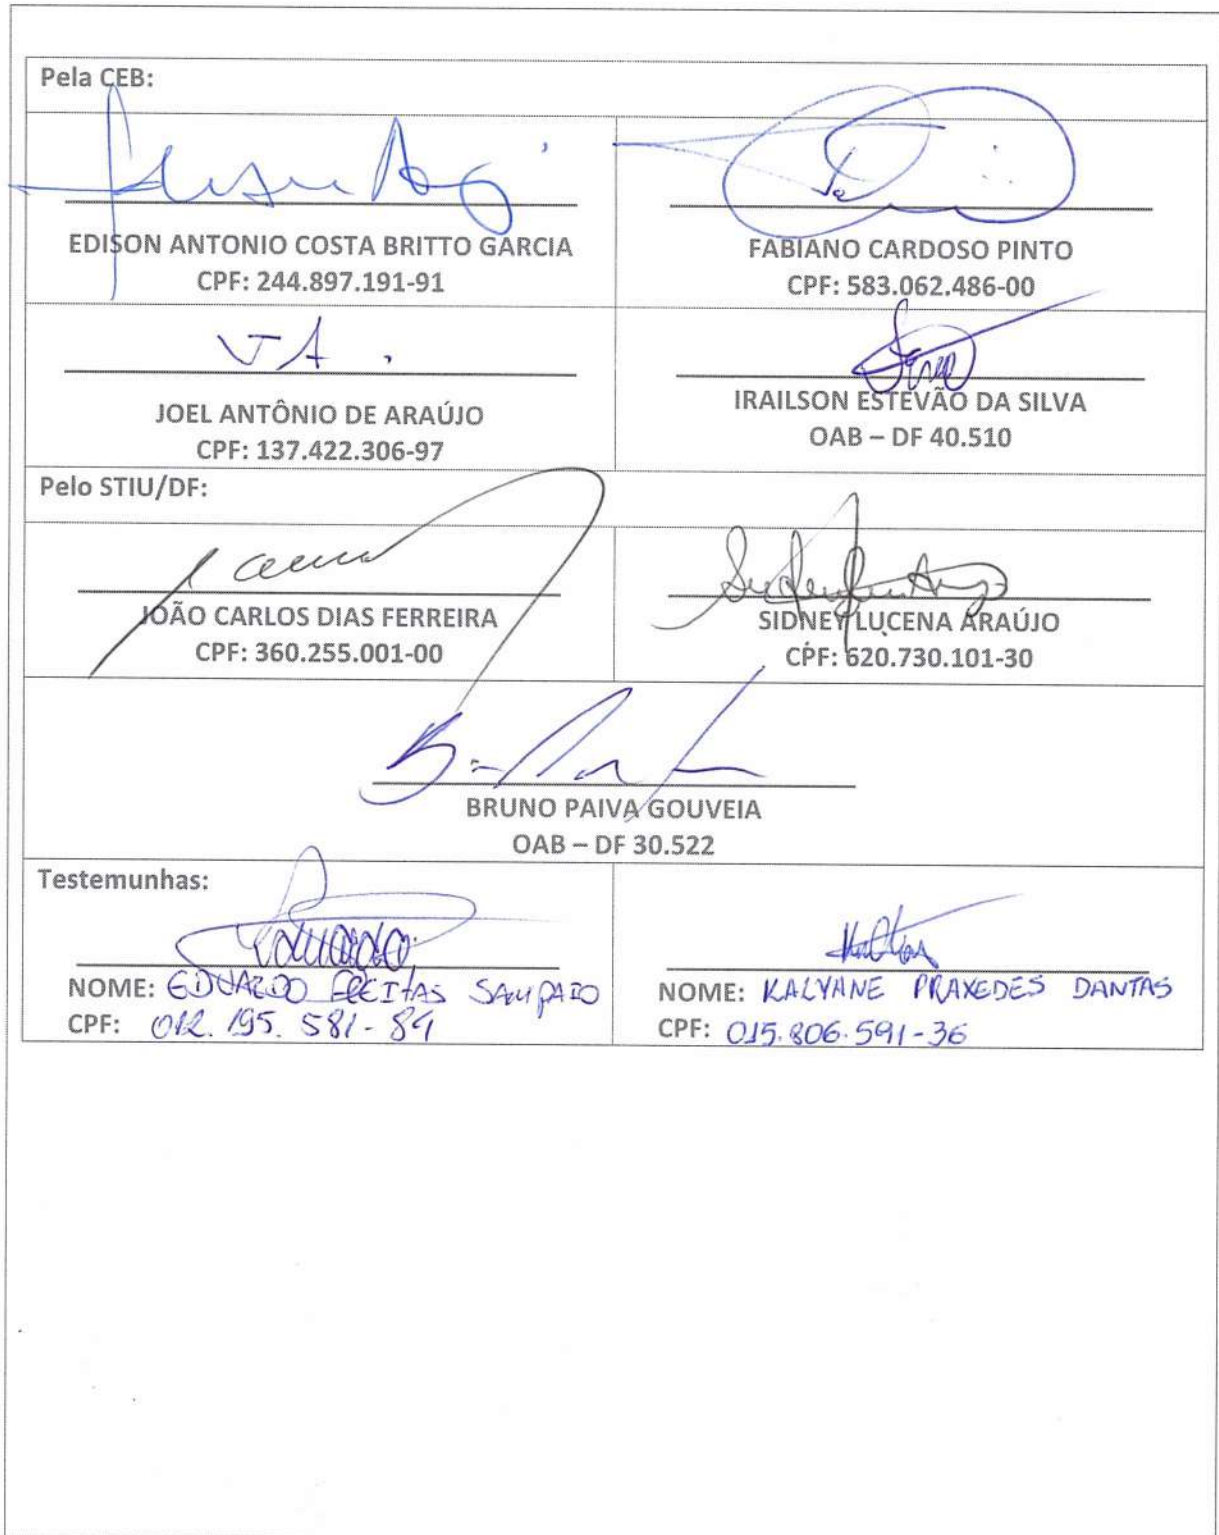 Pela CEB:
EDISON ANTONIO COSTA BRITTO GARCIA
CPF: 244.897.191-91
FABIANO CARDOSO PINTO
CPF: 583.062.486-00
JOEL ANTÔNIO DE ARAÚJO
CPF: 137.422.306-97
IRAILSON ESTEVÃO DA SILVA
OAB – DF 40.510
Pelo STIU/DF:
JOÃO CARLOS DIAS FERREIRA
CPF: 360.255.001-00
SIDNEY LUCENA ARAÚJO
CPF: 620.730.101-30
BRUNO PAIVA GOUVEIA
OAB – DF 30.522
Testemunhas:
NOME: EDUARDO FREITAS SAMPAIO
CPF: 012.195.581-84
NOME: KALYANE PRAXEDES DANTAS
CPF: 015.806.591-36